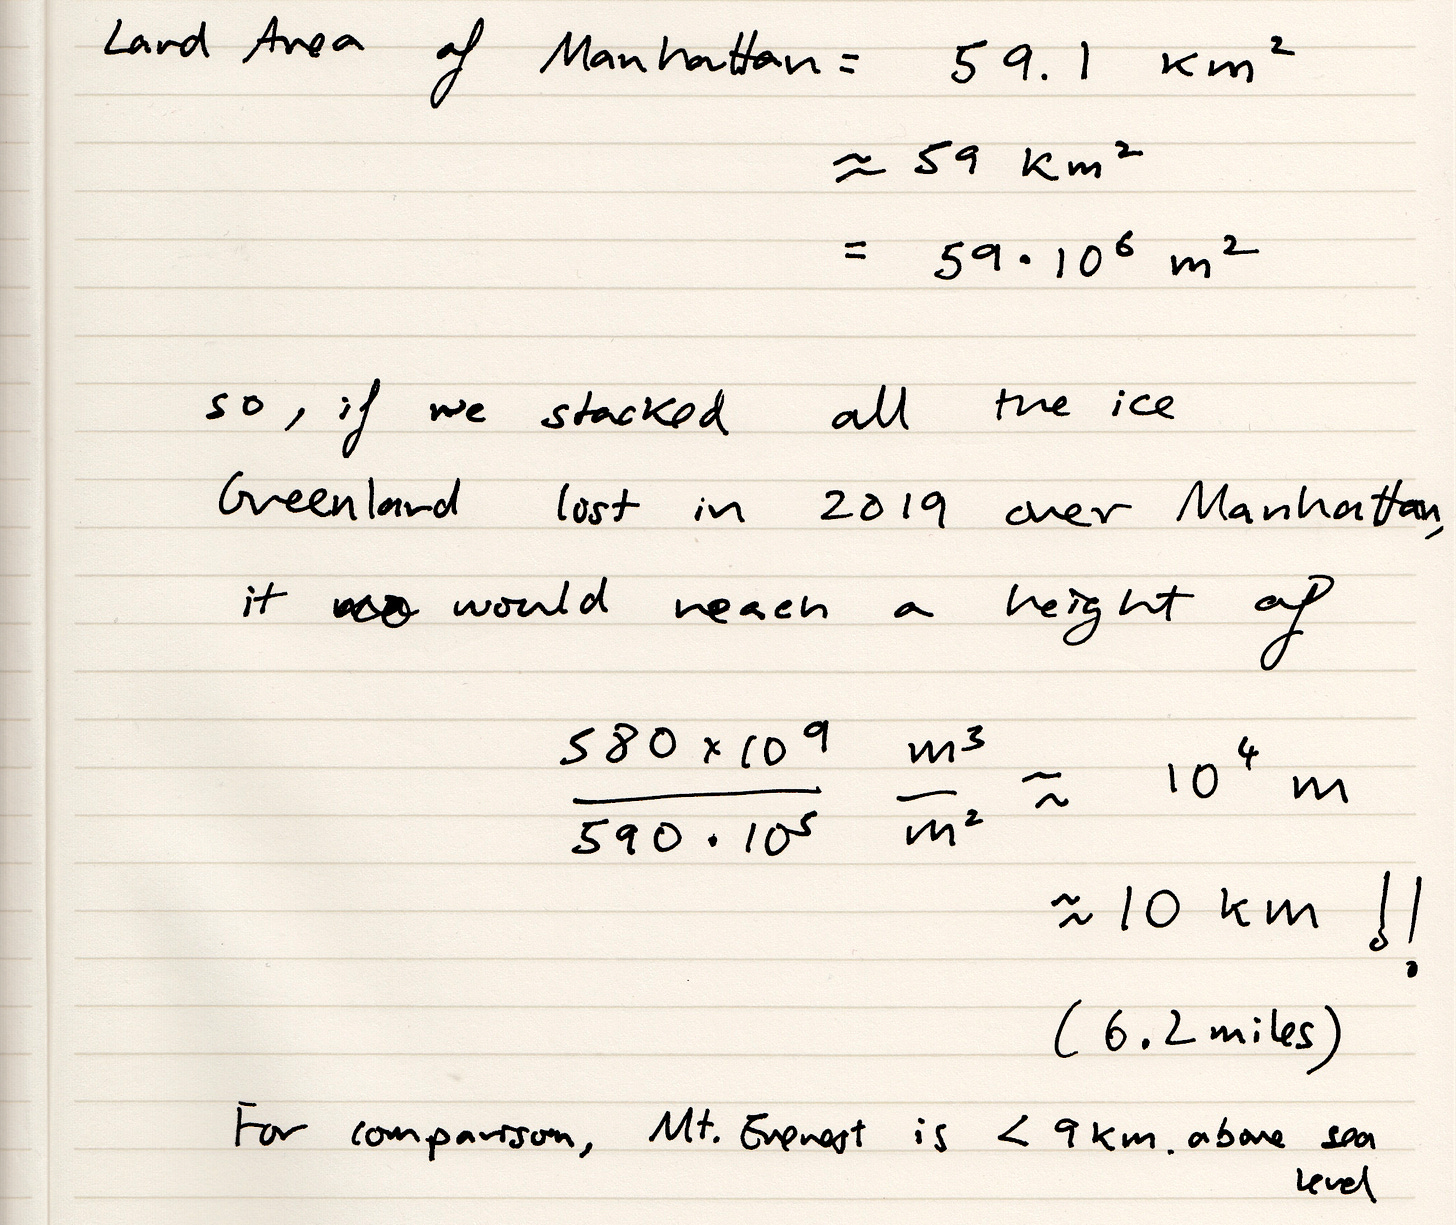 Land Area of Manhattan = 59.1 km²
≈ 59 km²
= 59·10⁶ m²
so, if we stacked all the ice
Greenland lost in 2019 over Manhattan,
it would reach a height of
580 × 10⁹ / 590 · 10⁵ m³ / m² ≈ 10⁴ m
≈ 10 km !!
(6.2 miles)
For comparison, Mt. Everest is < 9 km. above sea
level